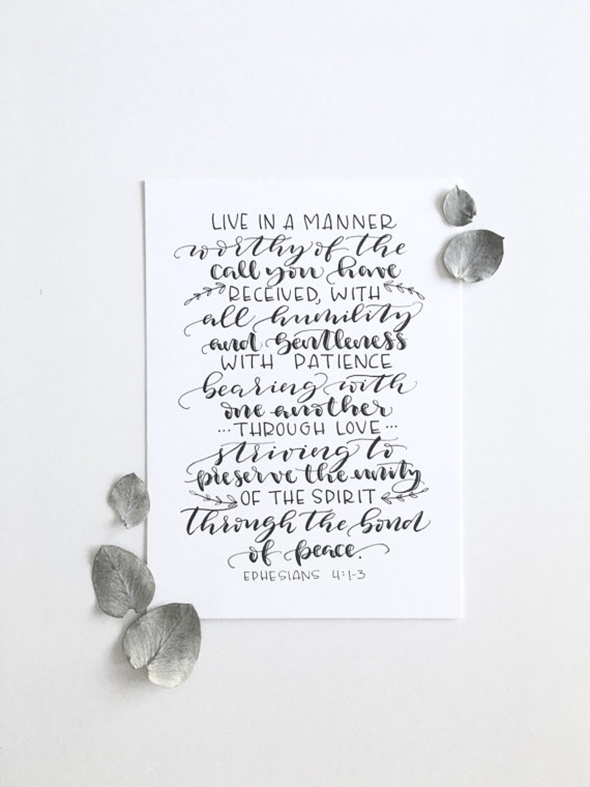 LIVE IN A MANNER
worthy of the
call you have
RECEIVED, WITH
all humility
and gentleness
WITH PATIENCE
bearing with
one another
...THROUGH LOVE...
striving to
preserve the unity
OF THE SPIRIT
through the bond
of peace.
EPHESIANS 4:1-3